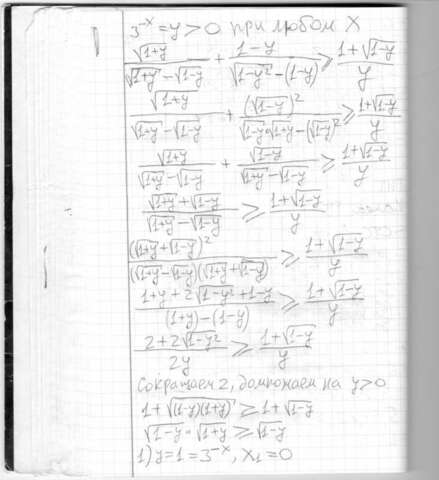 3^{-x} = y > 0 при любом X
\frac{\sqrt{1+y}}{\sqrt{1+y} - \sqrt{1-y}} + \frac{1-y}{\sqrt{1-y^2} - (1-y)} ≥ \frac{1+\sqrt{1-y}}{y}
\frac{\sqrt{1+y}}{\sqrt{1+y} - \sqrt{1-y}} + \frac{(\sqrt{1-y})^2}{\sqrt{1-y} \cdot \sqrt{1+y} - (\sqrt{1-y})^2} ≥ \frac{1+\sqrt{1-y}}{y}
\frac{\sqrt{1+y}}{\sqrt{1+y} - \sqrt{1-y}} + \frac{\sqrt{1-y}}{\sqrt{1+y} - \sqrt{1-y}} ≥ \frac{1+\sqrt{1-y}}{y}
\frac{\sqrt{1+y} + \sqrt{1-y}}{\sqrt{1+y} - \sqrt{1-y}} ≥ \frac{1+\sqrt{1-y}}{y}
\frac{(\sqrt{1+y} + \sqrt{1-y})^2}{(\sqrt{1+y} - \sqrt{1-y})(\sqrt{1+y} + \sqrt{1-y})} ≥ \frac{1+\sqrt{1-y}}{y}
\frac{1+y + 2\sqrt{1-y^2} + 1-y}{(1+y) - (1-y)} ≥ \frac{1+\sqrt{1-y}}{y}
\frac{2 + 2\sqrt{1-y^2}}{2y} ≥ \frac{1+\sqrt{1-y}}{y}
Сокращаем 2, домножаем на y > 0
1 + \sqrt{(1-y)(1+y)} ≥ 1 + \sqrt{1-y}
\sqrt{1-y} \cdot \sqrt{1+y} ≥ \sqrt{1-y}
1) y = 1 = 3^{-x}, X_1 = 0